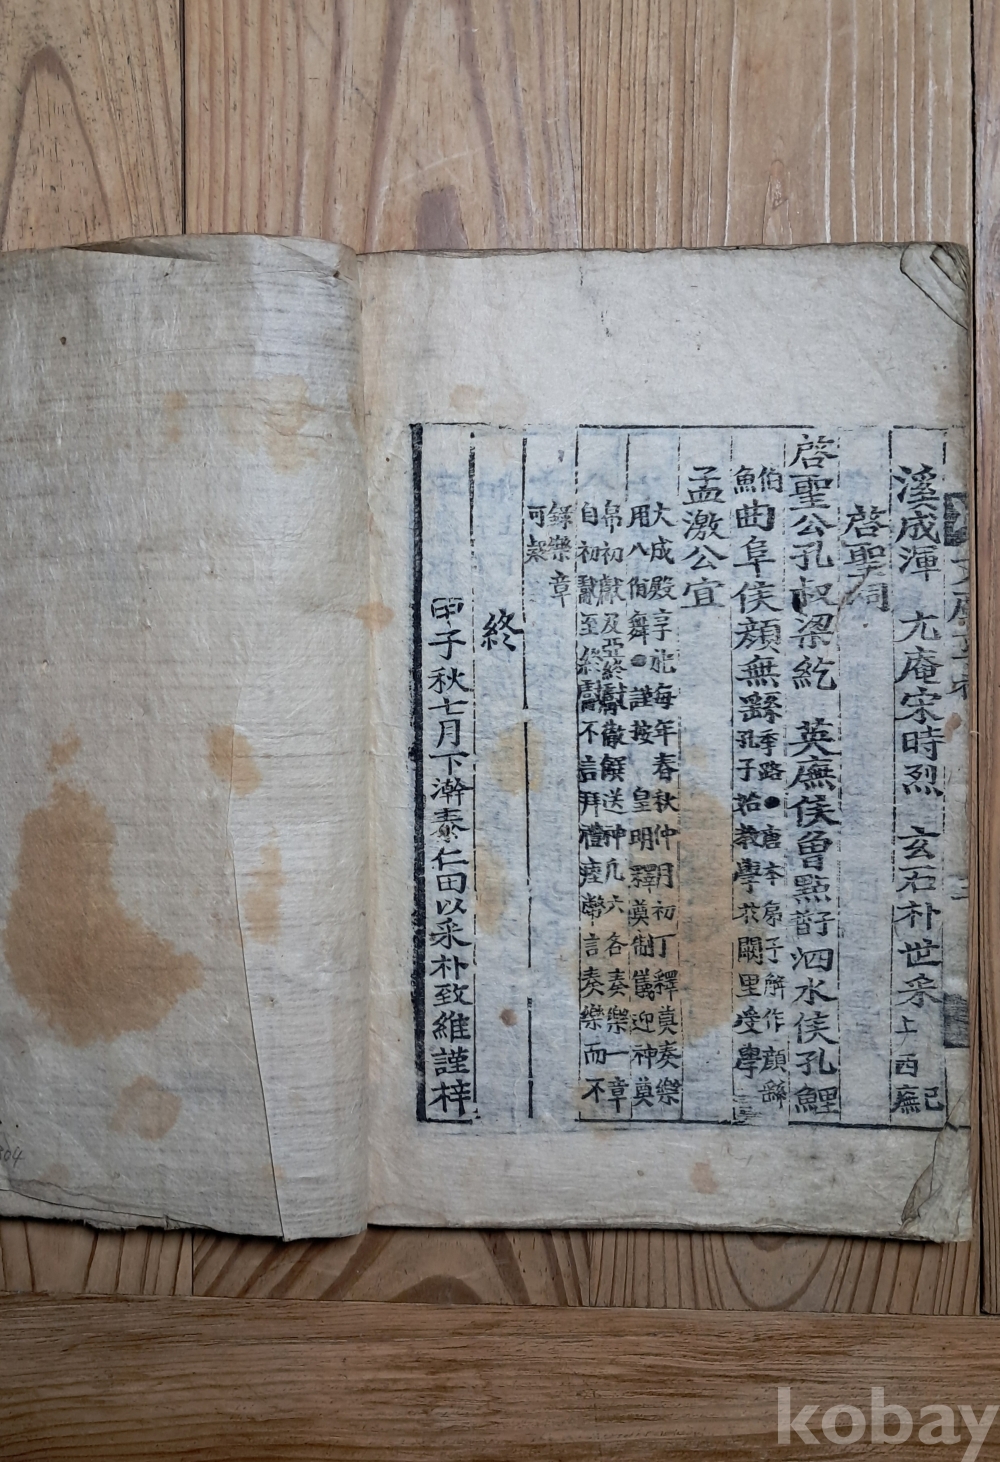 溪成渾 尤庵宋時烈 玄石朴世采 上西廡 已
啓聖祠
啓聖公孔叔梁紇 英廡侯曾點 晳子 泗水侯孔鯉
伯魚 曲阜侯顔無繇 季路●唐本家子解作顔繇
孔子始教學於闕里受學
孟激公宜
大成殿享祀每年春秋仲月初丁釋奠奏樂
用八佾舞●謹按 皇明釋奠制儀迎神奠
帛初獻及亞終獻徹饌送神凡六各奏樂一章
自初獻至終獻不言拜禮瘞幣言奏樂而不
錄樂章
何歟
終
甲子秋七月下澣泰仁田以采朴致維謹梓
kobay